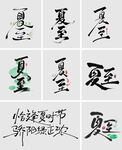 夏至
夏至
夏至
夏至
夏至
夏至
夏至
恰逢夏时节
骄阳绿正浓
夏至